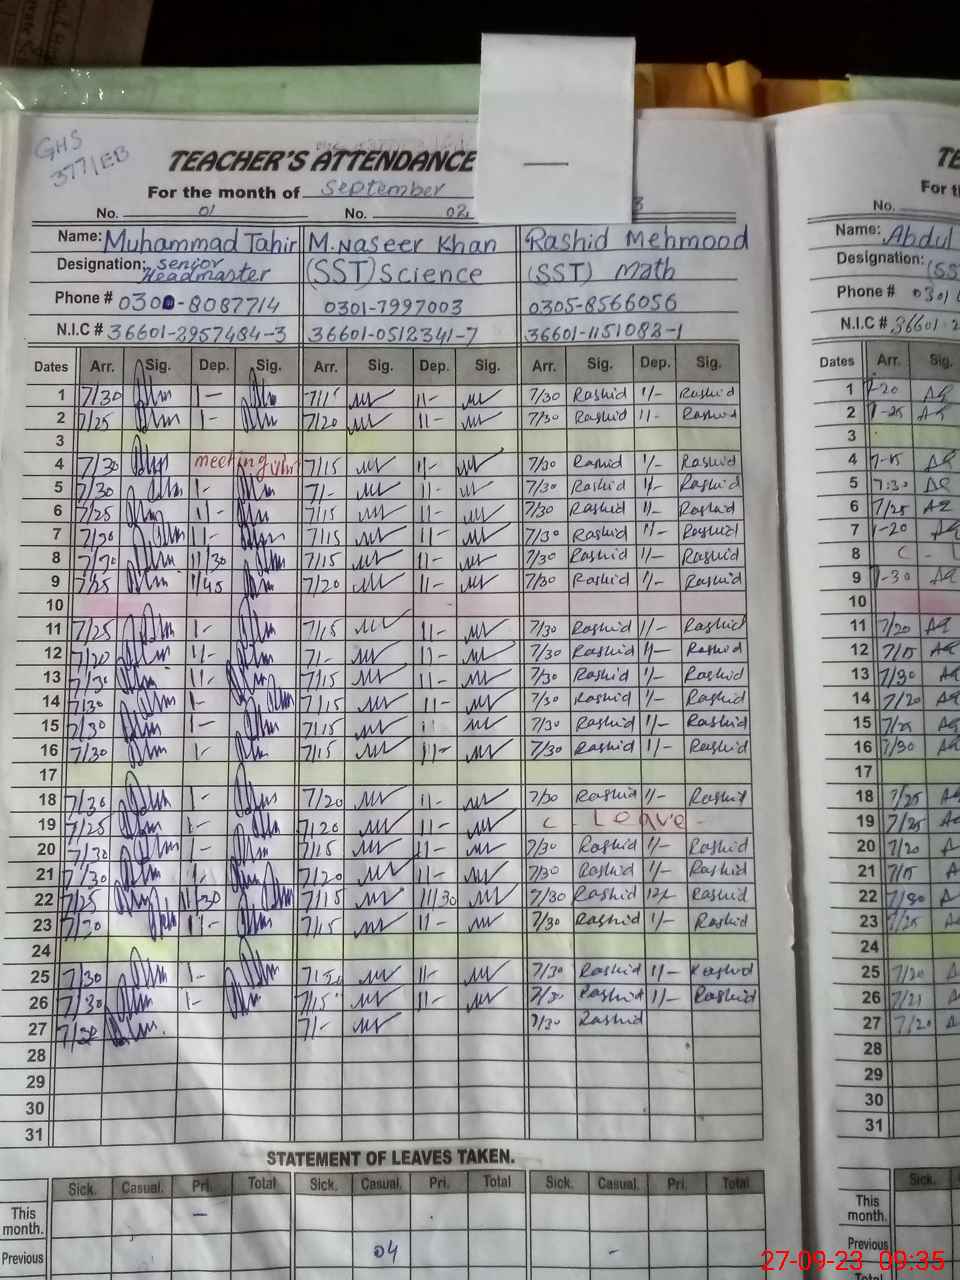 GHS
377/EB
TEACHER'S ATTENDANCE
For the month of September
No. 01 No. 02 3
Name: Muhammad Tahir M. Naseer Khan Rashid Mehmood
Designation: Senior Headmaster (SST) Science (SST) Math
Phone # 0300-8087714 0301-7997003 0305-8566056
N.I.C # 36601-2957484-3 36601-0512341-7 36601-1151082-1
Dates Arr. Sig. Dep. Sig. Arr. Sig. Dep. Sig. Arr. Sig. Dep. Sig.
1 7/30 1- 7/1 11- 7/30 Rashid 1/- Rashid
2 7/25 1- 7/20 11- 7/30 Rashid 11- Rashid
3
4 7/30 meeting 7/15 1/- 7/30 Rashid 1/- Rashid
5 7/30 1- 7/- 11- 7/30 Rashid 1/- Rashid
6 7/25 11- 7/15 11- 7/30 Rashid 1/- Rashid
7 7/30 11- 7/15 11- 7/30 Rashid 1/- Rashid
8 7/30 11/30 7/15 11- 7/30 Rashid 1/- Rashid
9 7/25 1/45 7/20 11- 7/30 Rashid 1/- Rashid
10
11 7/25 1- 7/15 11- 7/30 Rashid 11- Rashid
12 7/20 11- 7/- 11- 7/30 Rashid 1/- Rashid
13 7/30 11- 7/15 11- 7/30 Rashid 1/- Rashid
14 7/30 1- 7/15 11- 7/30 Rashid 1/- Rashid
15 7/30 1- 7/15 11 7/30 Rashid 1/- Rashid
16 7/30 1- 7/15 11- 7/30 Rashid 1/- Rashid
17
18 7/30 1- 7/20 11- 7/30 Rashid 1/- Rashid
19 7/25 1- 7/20 11- C - Leave -
20 7/30 1- 7/15 11- 7/30 Rashid 1/- Rashid
21 7/30 1- 7/20 11- 7/30 Rashid 1/- Rashid
22 7/25 11/30 7/15 11/30 7/30 Rashid Rashid
23 7/30 11- 7/15 11- 7/30 Rashid 1/- Rashid
24
25 7/30 1- 11- 7/30 Rashid 11- Rashid
26 7/30 1- 7/15 11- 7/30 Rashid 11- Rashid
27 7/30 7/- 7/30 Rashid
28
29
30
31
STATEMENT OF LEAVES TAKEN.
Sick. Casual. Pri. Total Sick. Casual. Pri. Total Sick. Casual. Pri. Total
This month. -
Previous 04 -
For
No.
Name: Abdul
Designation:
Phone # 0301
N.I.C # 36601-2
Dates Arr. Sig.
1 7-20
2 7-25
3
4 7-15
5 7:30
6 7/25
7 7-20
8 C -
9 7-30
10
11 7/20
12 7/15
13 7/30
14 7/20
15 7/25
16 7/30
17
18 7/25
19 7/25
20 7/20
21 7/15
22 7/30
23 7/25
24
25 7/20
26 7/21
27 7/20
28
29
30
31
Sick.
This month.
Previous
Total
27-09-23 09:35